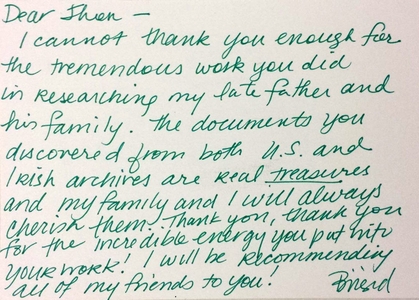 Dear Shon –
I cannot thank you enough for
the tremendous work you did
in researching my late father and
his family. The documents you
discovered from both U.S. and
Irish archives are real treasures
and my family and I will always
cherish them. Thank you, thank you
for the incredible energy you put into
your work! I will be recommending
all of my friends to you!